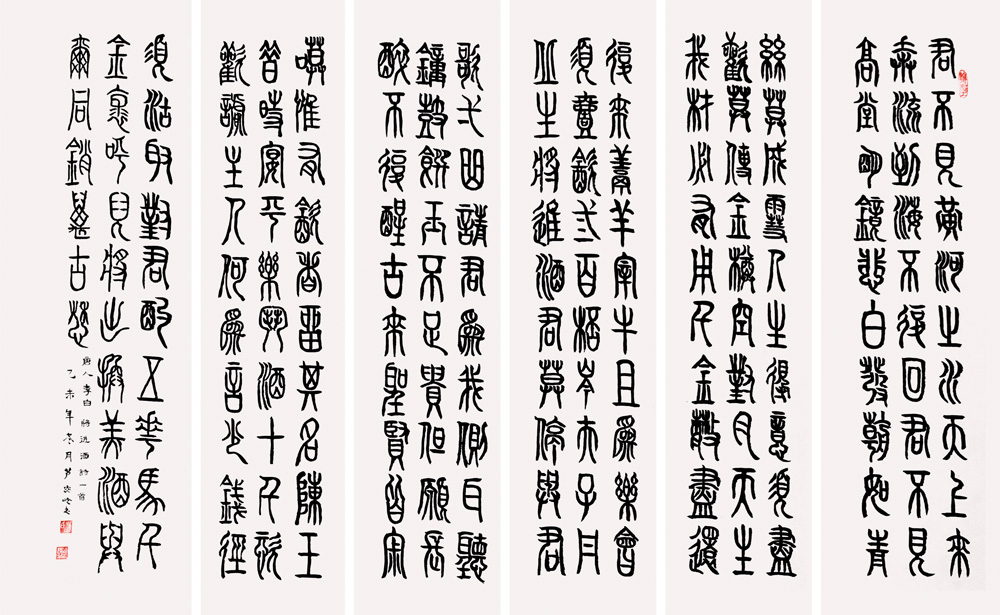 君不見黃河之水天上來
奔流到海不復回君不見
高堂明鏡悲白髮朝如青
絲莫成雪人生得意須盡
歡莫使金樽空對月天生
我材必有用千金散盡還
復來烹羊宰牛且為樂會
須壹飲弎百桮岑夫子丹
丘生將進酒君莫停與君
歌弌曲請君為我側耳聽
鐘鼓饌玉不足貴但願長
醉不復醒古來聖賢皆寂
嗼惟有飲者留其名陳王
昔時宴平樂斗酒十千恣
歡謔主人何為言少錢徑
須沽取對君酌五花馬千
金裘呼兒將出換美酒與
爾同銷萬古愁
唐人李白將進酒詩一首
乙未年冬月